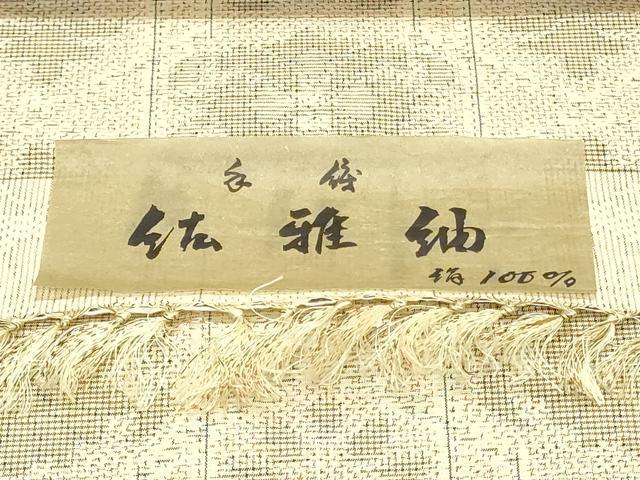 手 織
紘 雅 紬
絹 100%